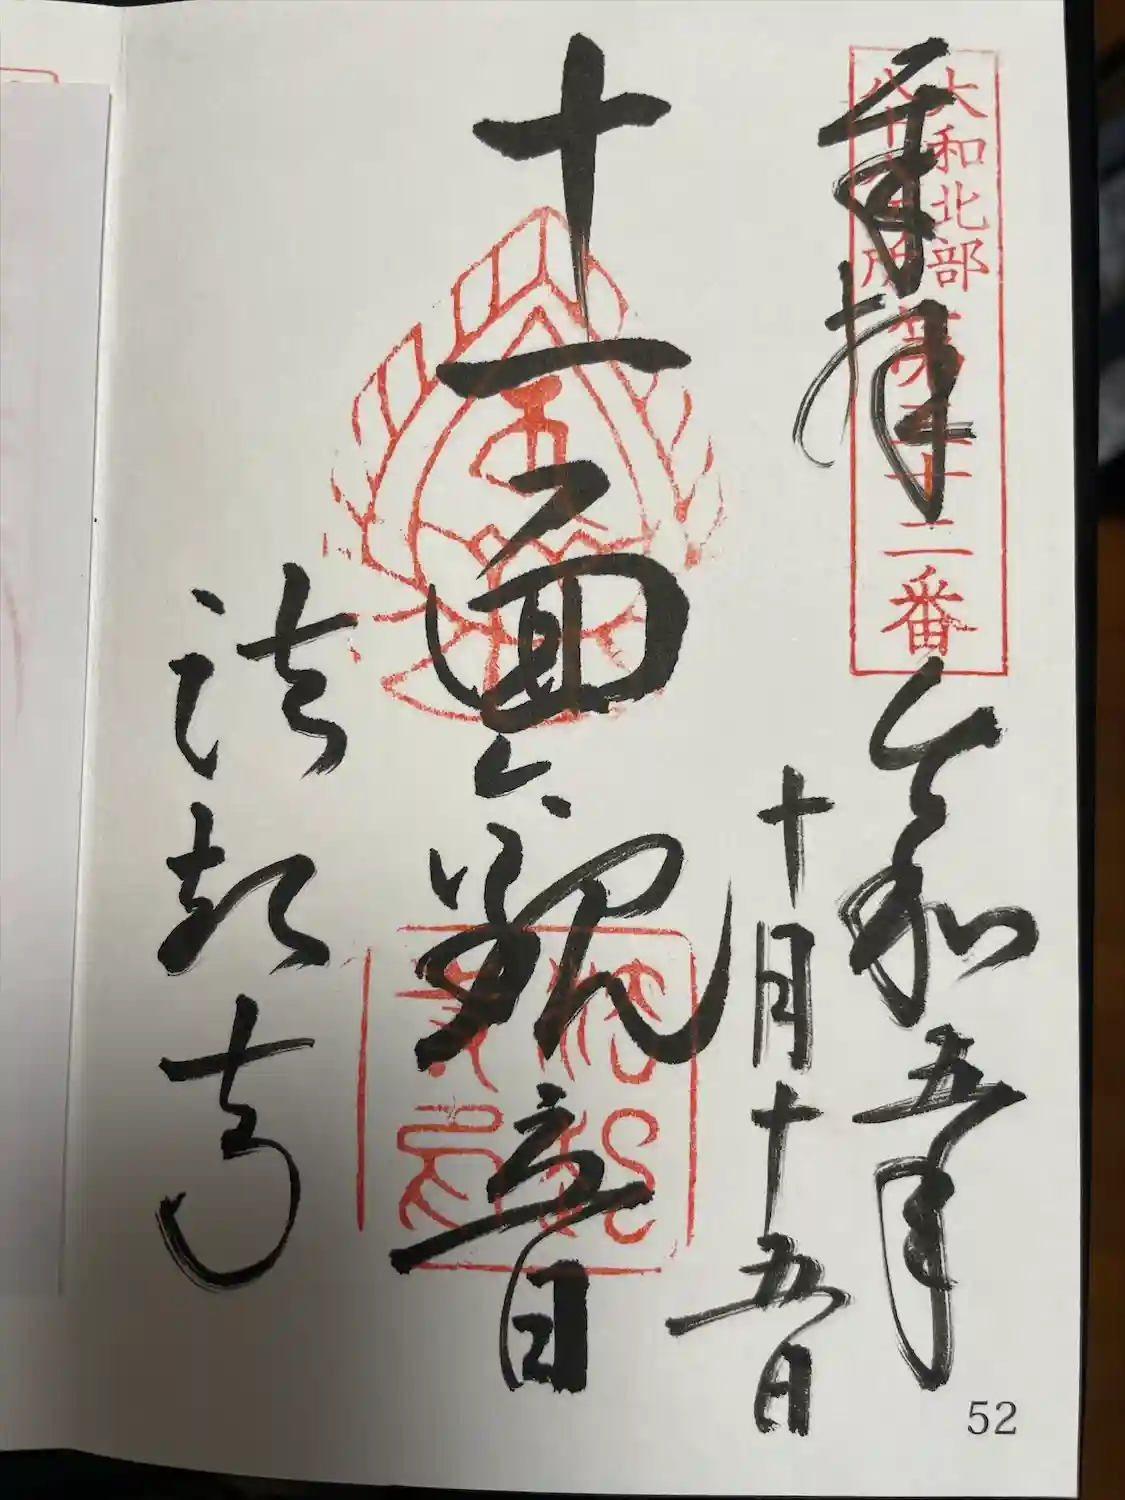 奉拝
大和北部
八十八ヶ所
第五十二番
令和五年
十月十五日
十一面観音
法起寺
52